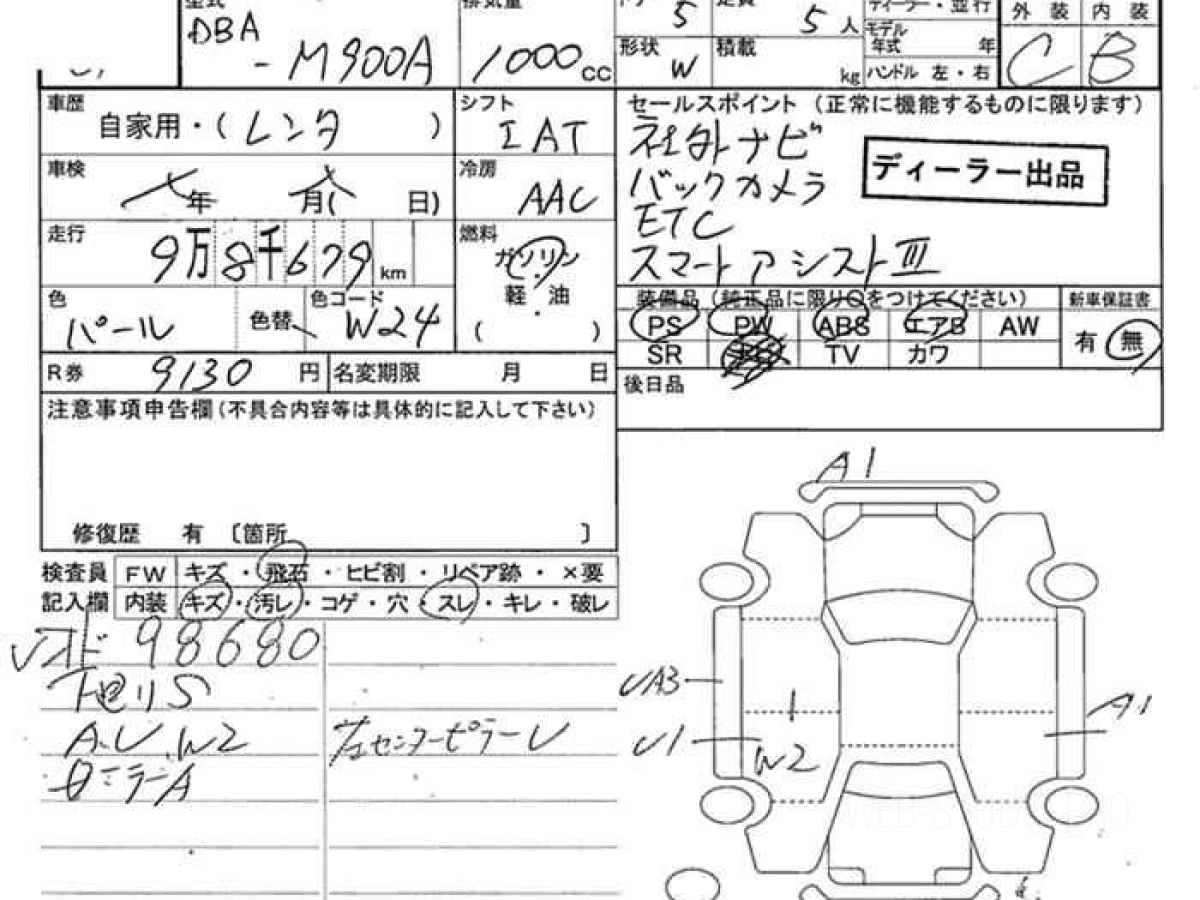 型式
DBA
- M900A
排気量
1000 cc
5
5 人
形状 W 積載 kg
ディーラー・並行
モデル
年式 年
ハンドル 左・右
外装 内装
C B
車歴
自家用・( レンタ )
シフト
IAT
車検
年 月( 日)
冷房
AAC
走行
9万8千679 km
燃料
ガソリン
軽・油
( )
色
パール
色替
色コード
W24
R券 9130 円 名変期限 月 日
注意事項申告欄(不具合内容等は具体的に記入して下さい)
修復歴 有 〔箇所 〕
セールスポイント (正常に機能するものに限ります)
社外ナビ
バックカメラ
ETC
スマートアシストⅢ
ディーラー出品
装備品 (純正品に限り〇をつけてください)
PS PW ABS エアB AW
SR TV カワ
新車保証書
有 無
後日品
検査員 FW キズ・飛石・ヒビ割・リペア跡・×要
記入欄 内装 キズ・汚レ・コゲ・穴・スレ・キレ・破レ
98680
A.U.W2
ミラーA
センターピラーU
A1
UA3
1
A1
U1
W2